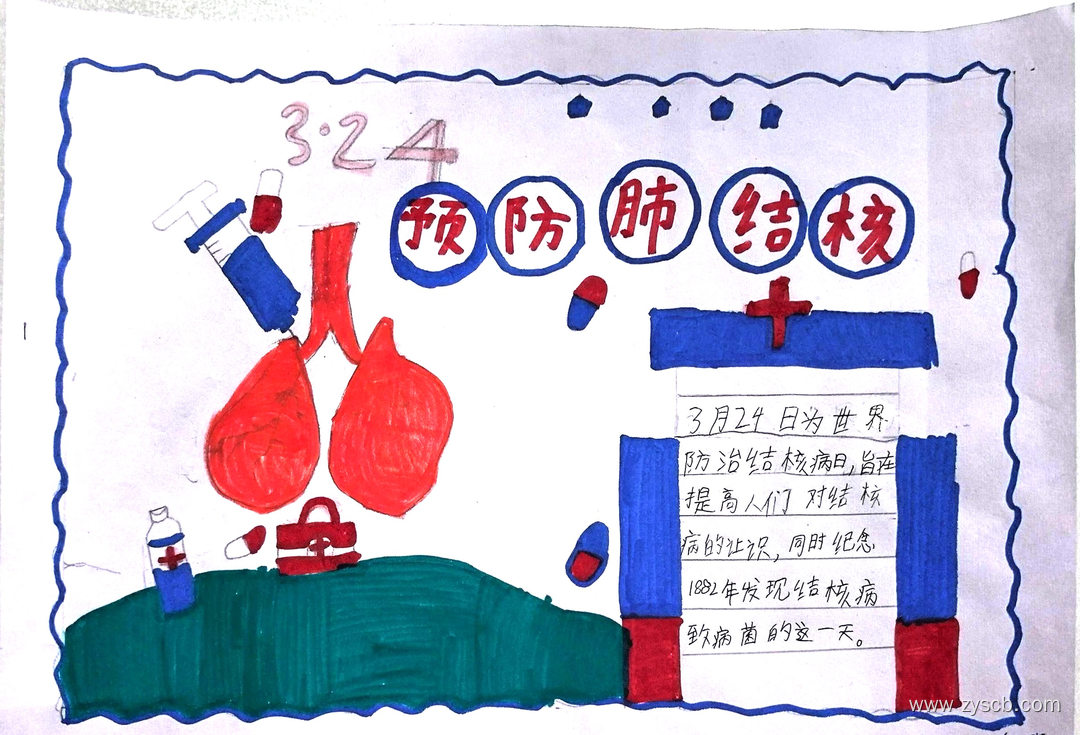 3·24
预防肺结核
3月24日为世界
防治结核病日，旨在
提高人们对结核
病的认识，同时纪念
1882年发现结核病
致病菌的这一天。
www.zyscb.com